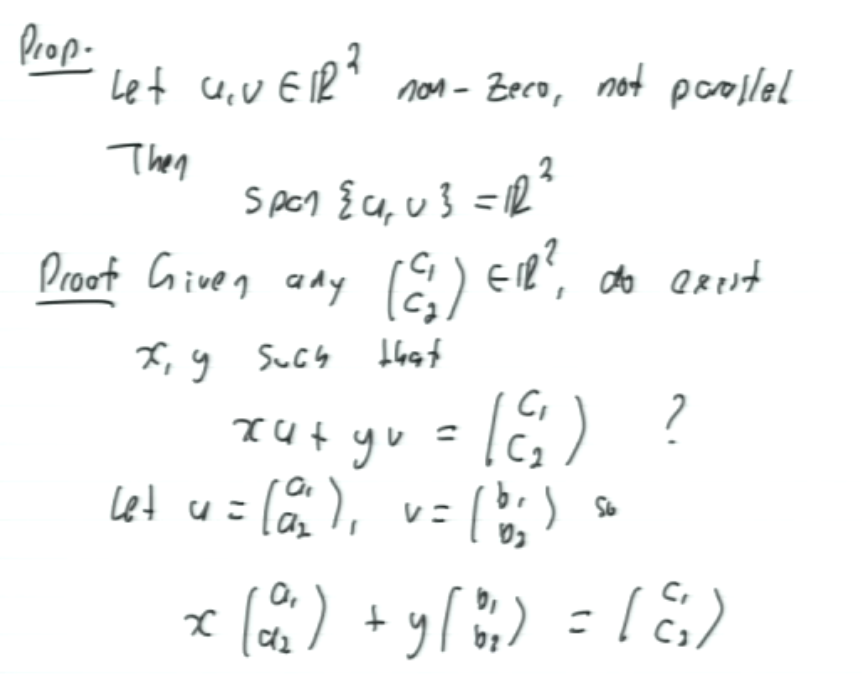 Prop.
Let u, v ∈ ℝ² non-zero, not parallel
Then
span {u, v} = ℝ²
Proof Given any (c₁ c₂) ∈ ℝ², do exist
x, y such that
xu + yv = (c₁ c₂) ?
Let u = (a₁ a₂), v = (b₁ b₂) so
x (a₁ a₂) + y (b₁ b₂) = (c₁ c₂)